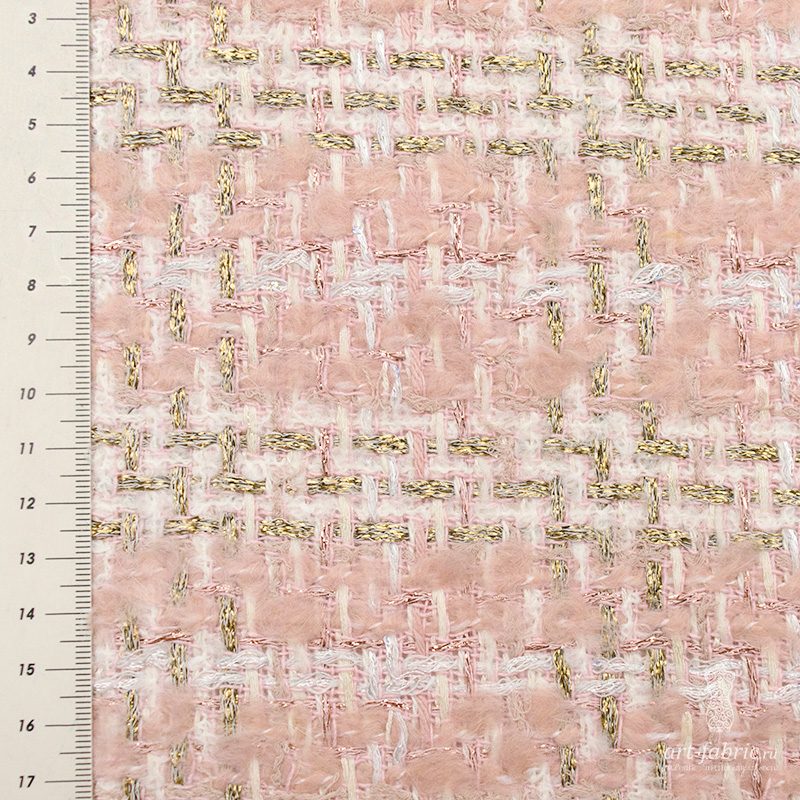 3
4
5
6
7
8
9
10
11
12
13
14
15
16
17
art-fabric.ru